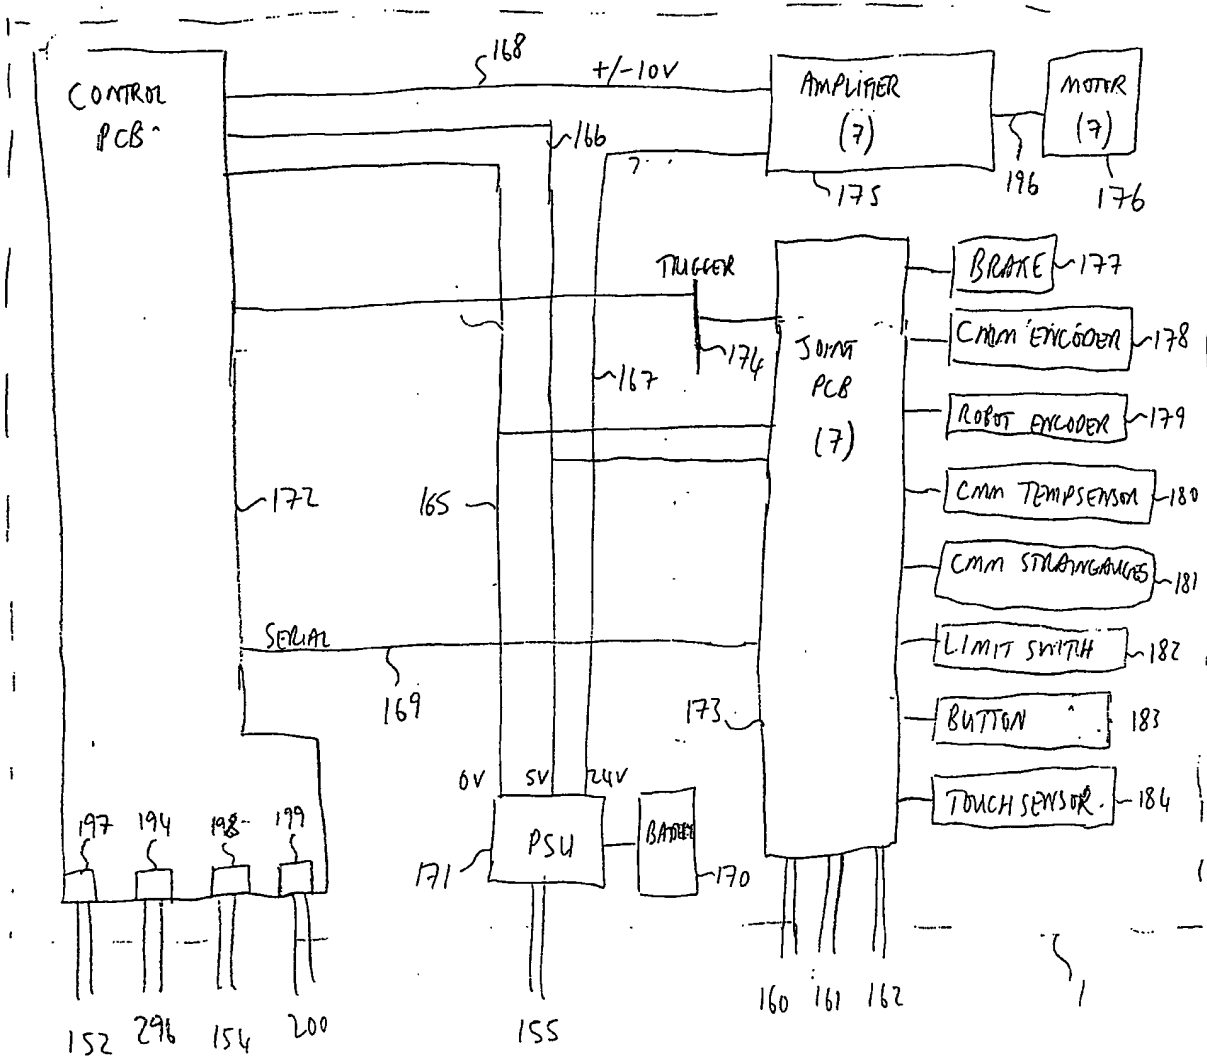 168
+/-10V
CONTROL
PCB
AMPLIFIER
(7)
MOTOR
(7)
166
175
196
176
TRIGGER
174
167
BRAKE
177
CMM ENCODER
178
JOINT
PCB
(7)
ROBOT ENCODER
179
172
165
CMM TEMPSENSOR
180
CMM STRAINGAUGES
181
SERIAL
169
LIMIT SWITH
182
173
BUTTON
183
0V
5V
24V
TOUCHSENSOR
184
197
194
198
199
PSU
171
170
152
296
154
200
155
160
161
162
1